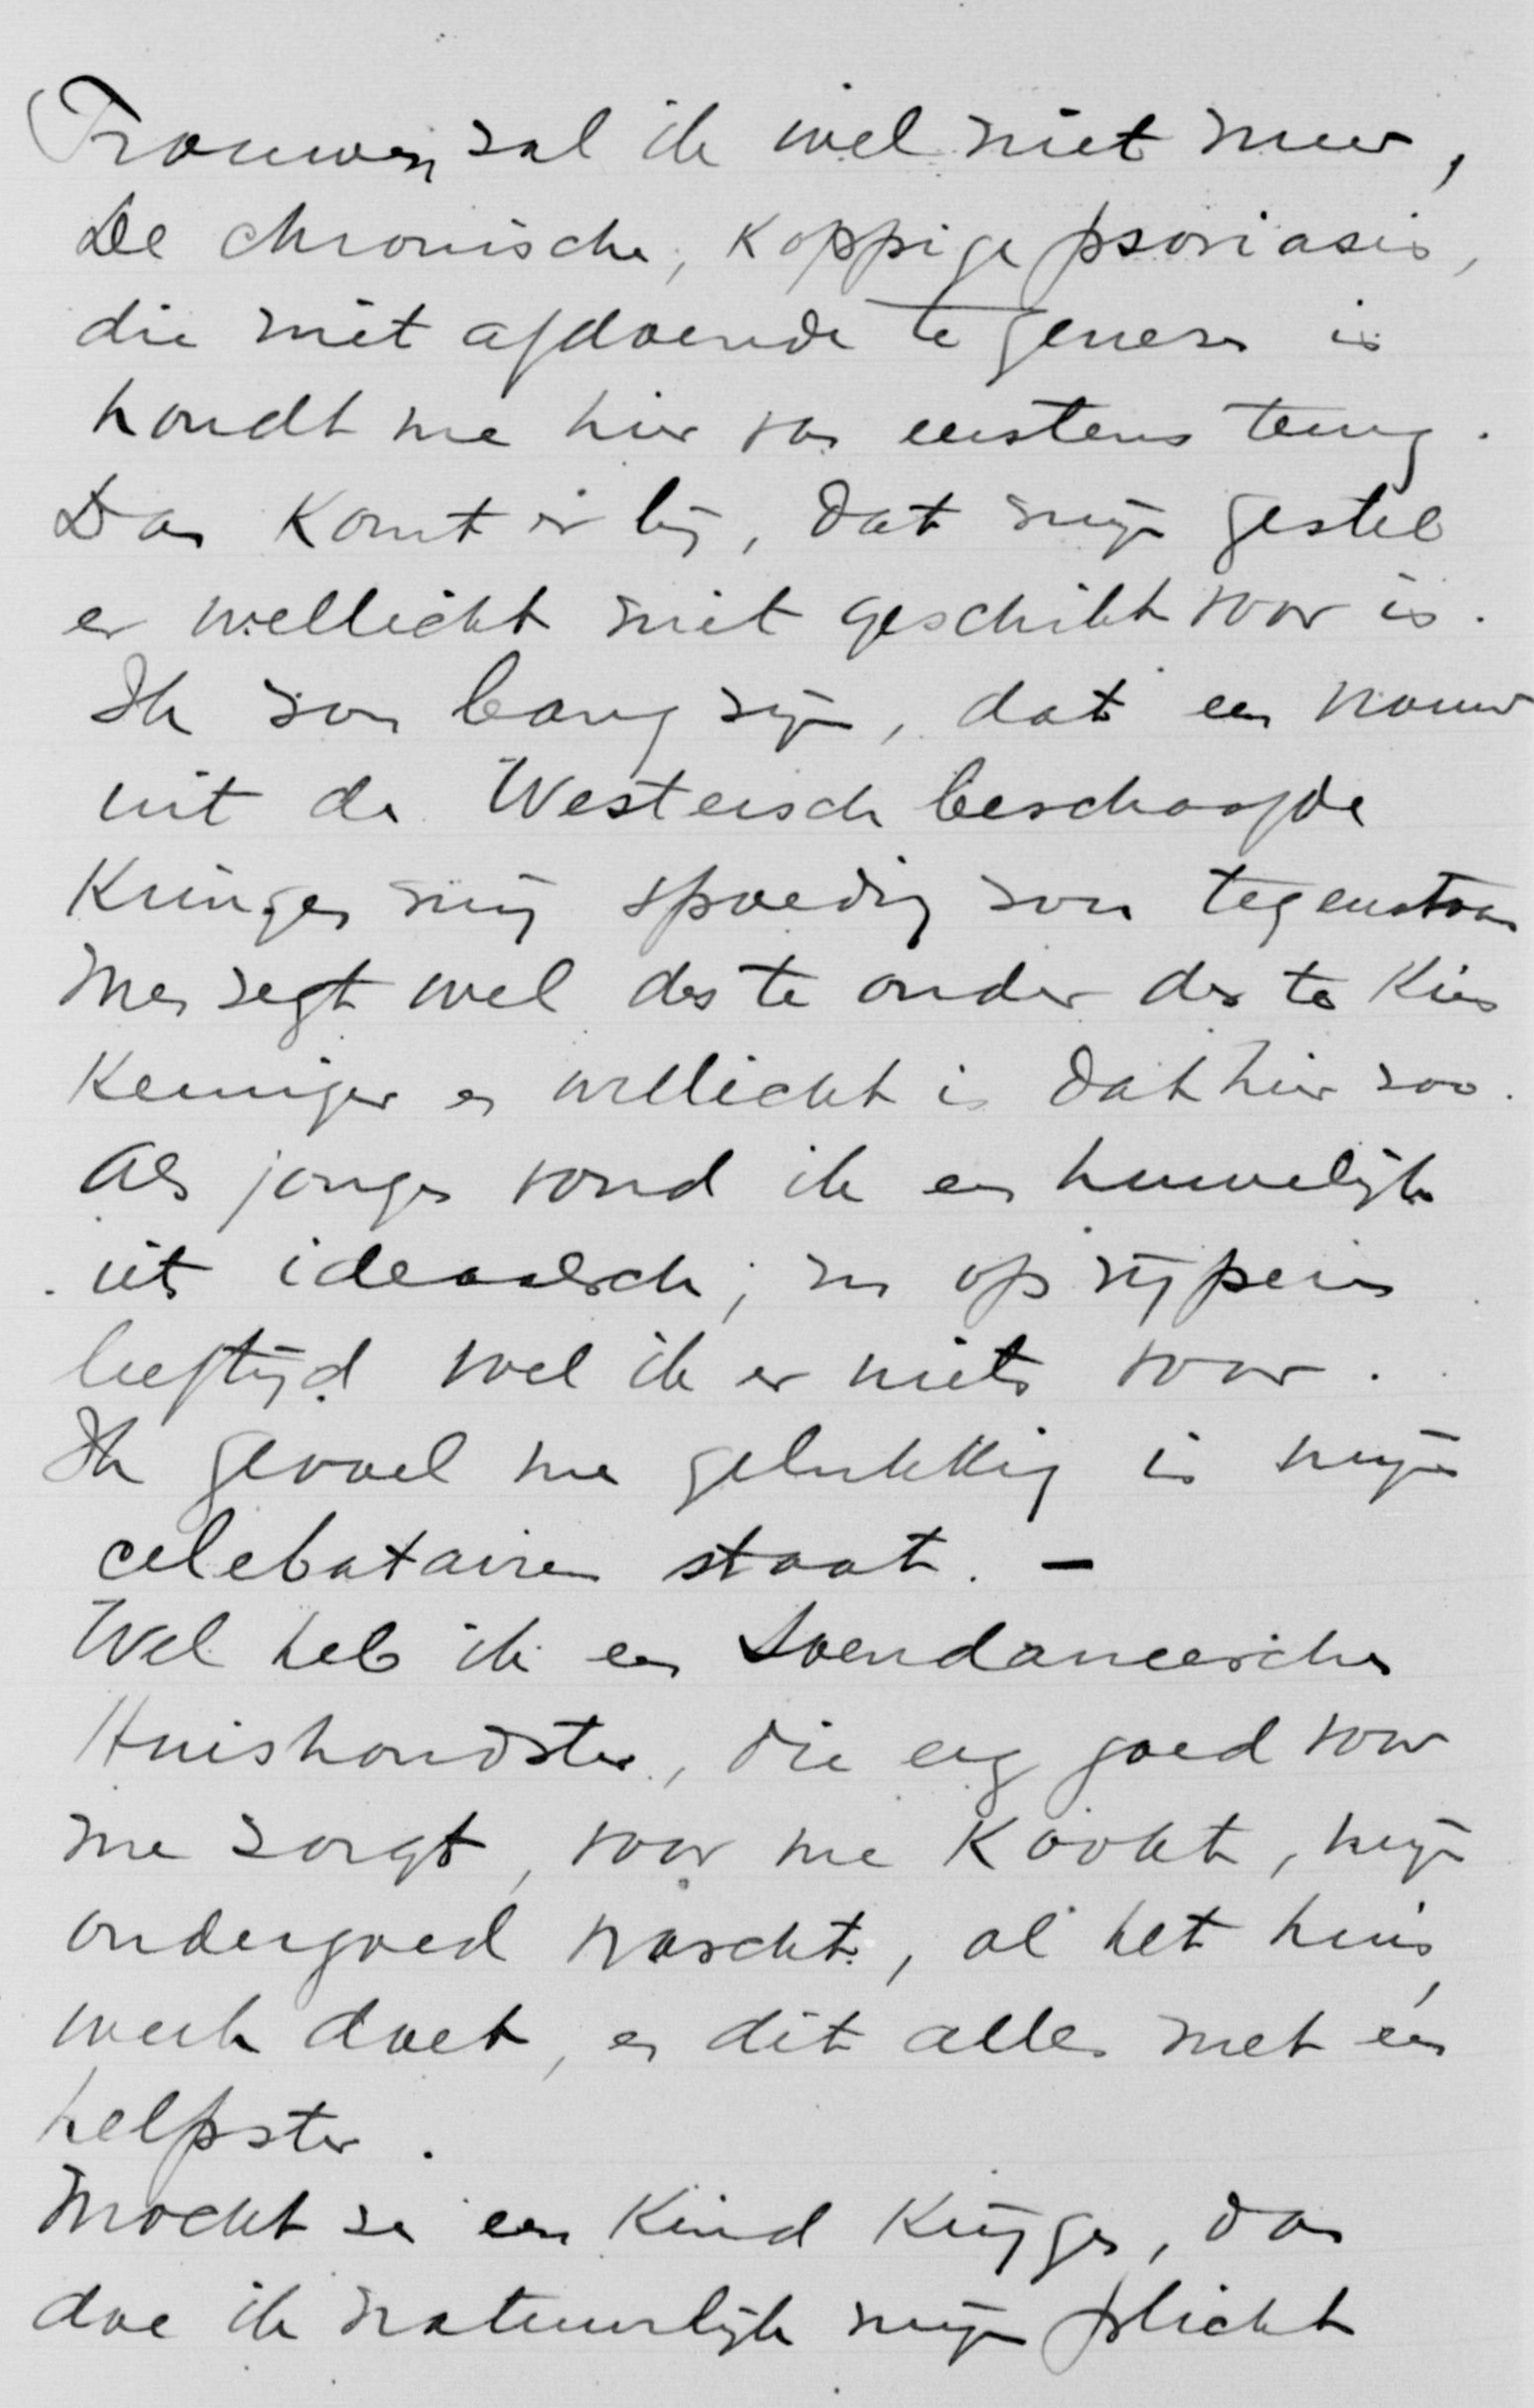 Trouwen zal ik wel niet meer,
De chronische, koppige psoriasis,
die niet afdoende te genezen is
houdt me hier van eerstens terug.
Dan komt er bij, dat mijn gestel
er wellicht niet geschikt voor is.
Ik zou bang zijn, dat een vrouw
uit de Westersch beschaafde
Kringen mij spoedig zou tegenstaan
Men zegt wel des te ouder des te Kies
Keuriger en wellicht is dat hier zoo.
Als jongen vond ik een huwelijk
iets ideaalsch; nu op rijperen
leeftijd voel ik er niets voor.
Ik gevoel me gelukkig in mijn
celebatairen staat. -
Wel heb ik een Soendaneesche
Huishoudster, die erg goed voor
me zorgt, voor me kookt, mijn
ondergoed wascht, al het huis
werk doet, en dit alles met één
helpster.
Mocht ze een Kind Krijgen, dan
doe ik natuurlijk mijn plicht